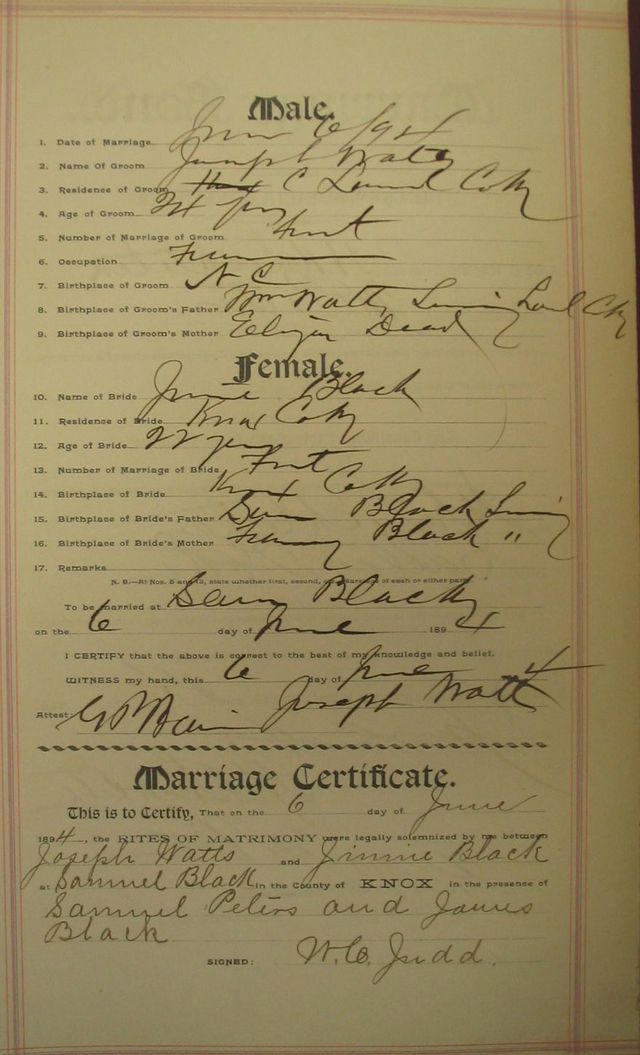 Male.
1. Date of Marriage June 6/94
2. Name Of Groom Joseph Watts
3. Residence of Groom C Laurel Co Ky
4. Age of Groom 24 yrs
5. Number of Marriage of Groom First
6. Occupation Farmer
7. Birthplace of Groom N C
8. Birthplace of Groom's Father Wm Watts Living Laurel Co Ky
9. Birthplace of Groom's Mother Dead
Female.
10. Name of Bride Jinnie Black
11. Residence of Bride Knox Co Ky
12. Age of Bride 22 yrs
13. Number of Marriage of Bride First
14. Birthplace of Bride Knox Co Ky
15. Birthplace of Bride's Father Sam Black Living
16. Birthplace of Bride's Mother Black "
17. Remarks
N. B.—At Nos. 5 and 13, state whether first, second, or marriage of each or either party.
To be married at Sam Blacks
on the 6 day of June 1894
I CERTIFY that the above is correct to the best of my knowledge and belief.
WITNESS my hand, this 6 day of June 4
Attest: Joseph Watts
Marriage Certificate.
This is to Certify, That on the 6 day of June
1894, the RITES OF MATRIMONY were legally solemnized by me between
Joseph Watts and Jinnie Black
at Samuel Black in the County of KNOX in the presence of
Samuel Peters and James
Black
SIGNED: W. C. Judd.